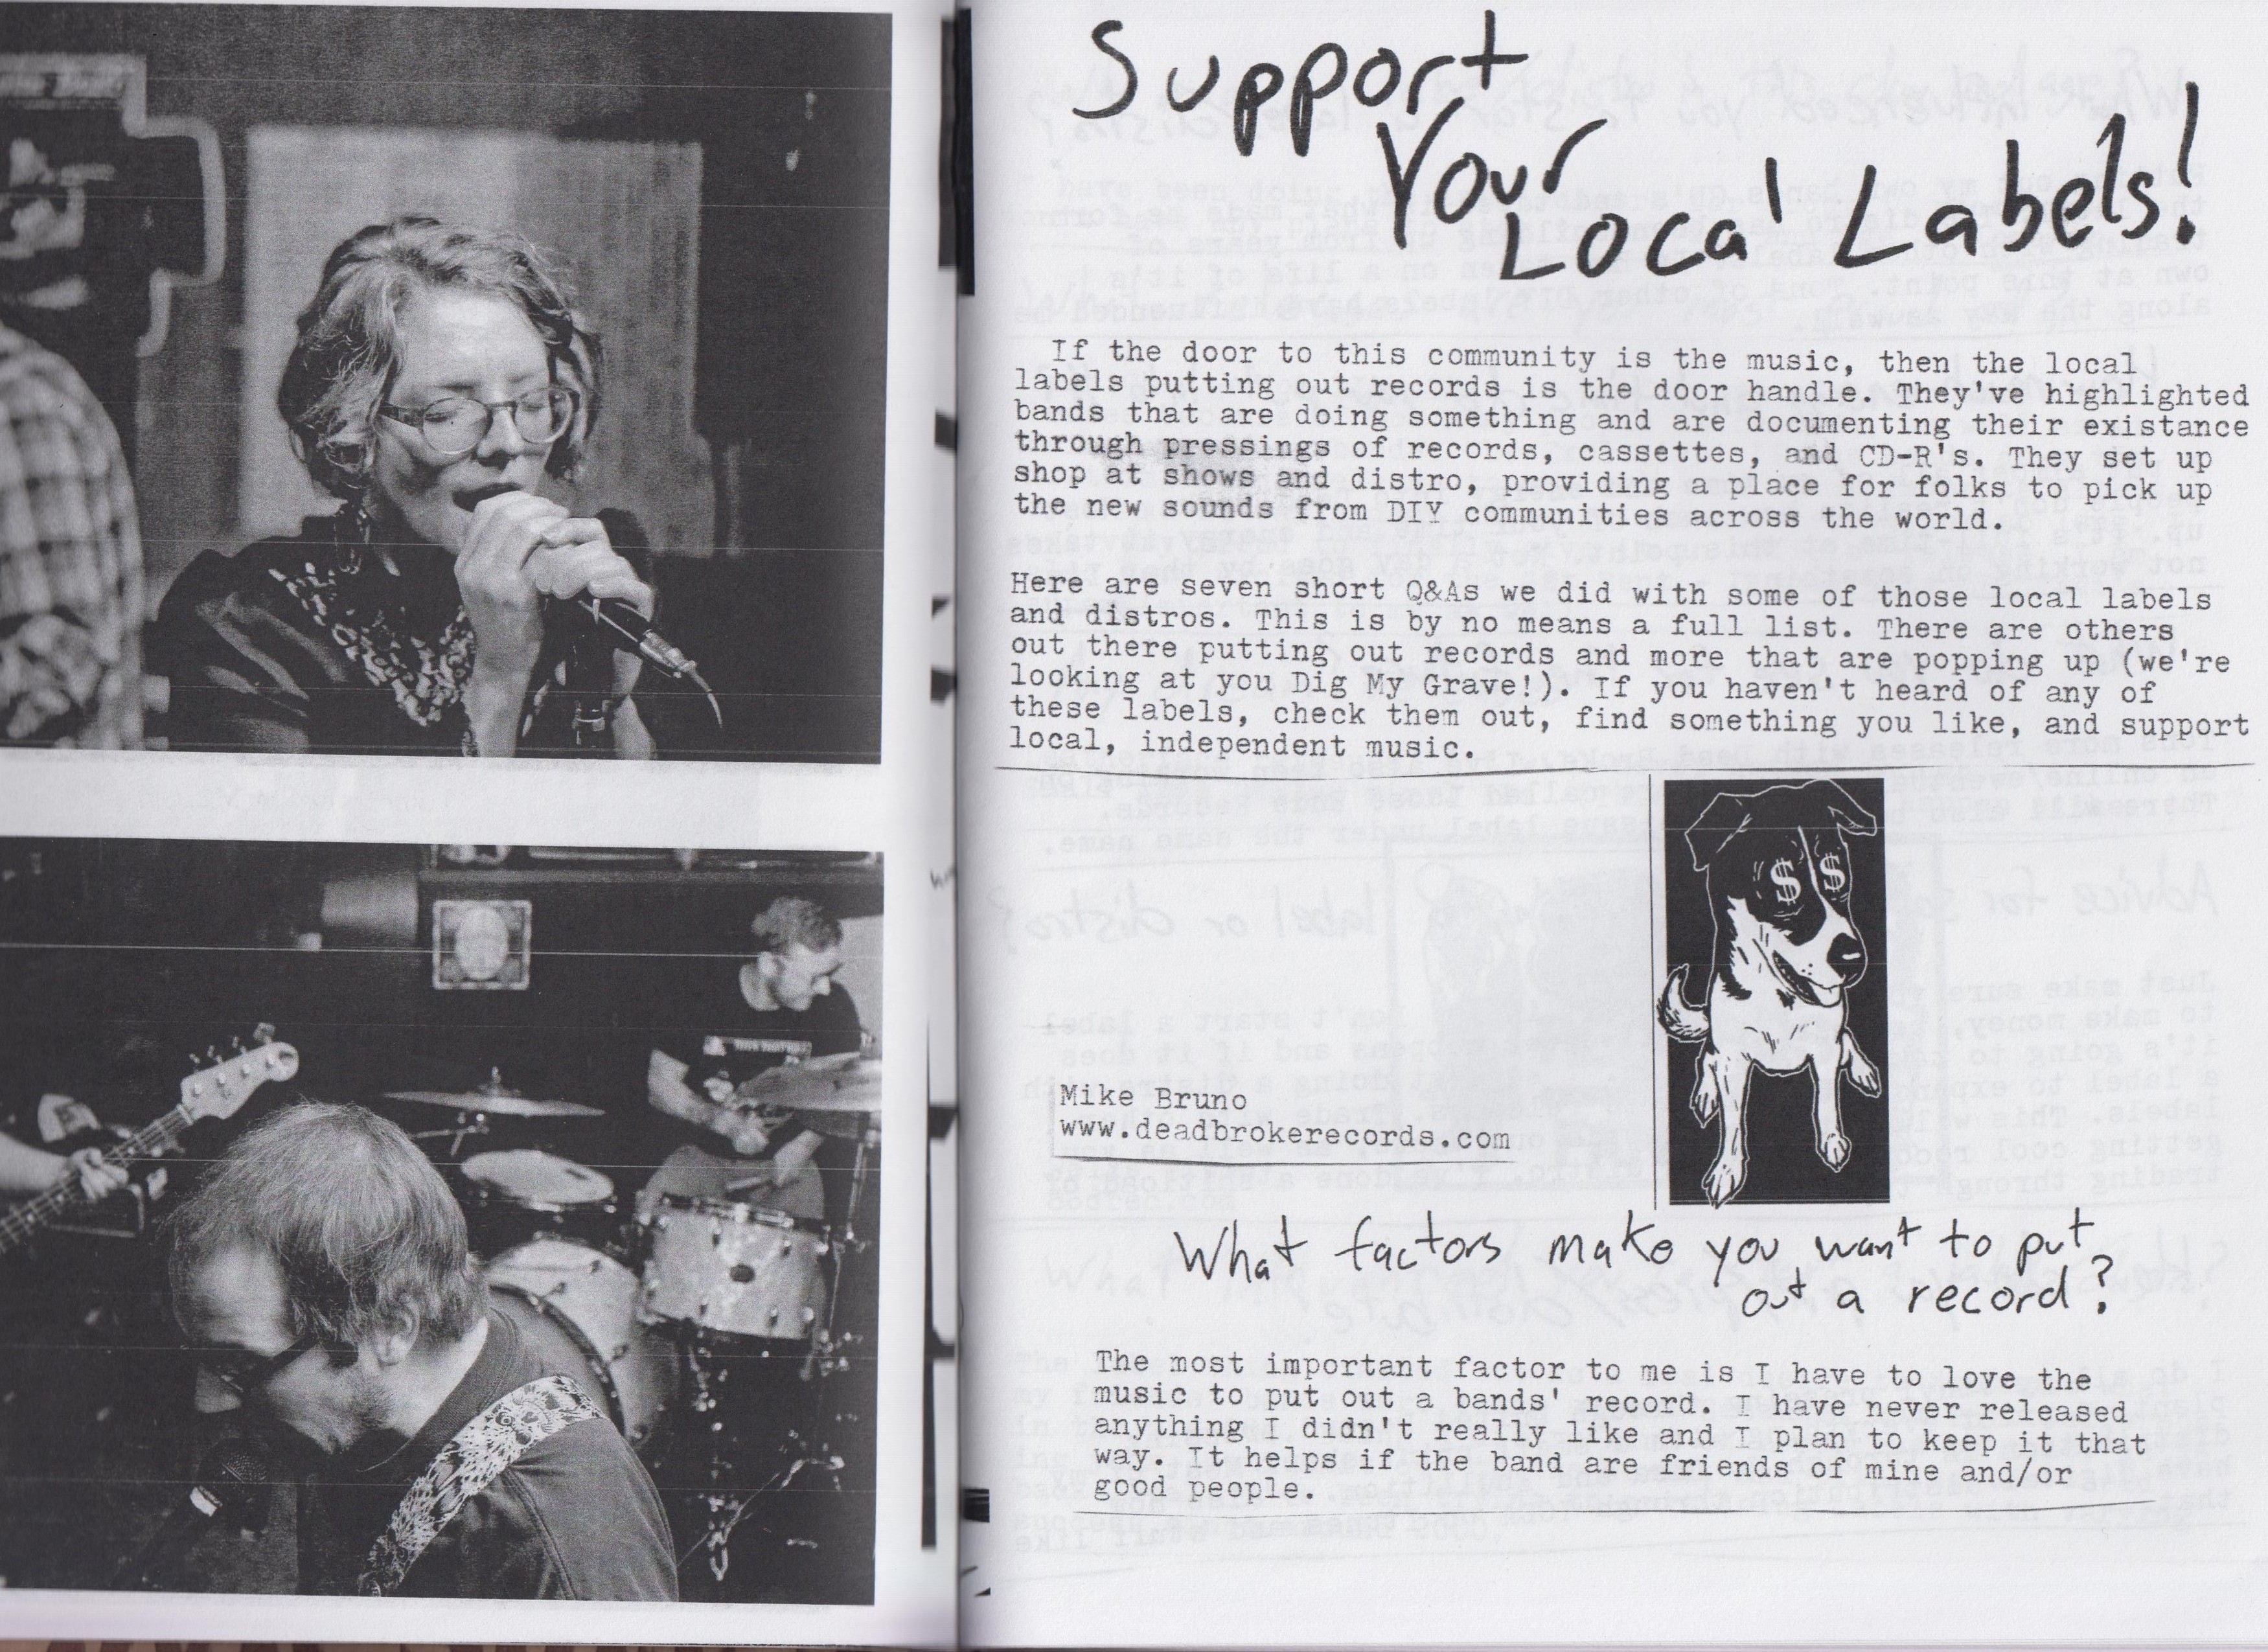 Support
Your
Local Labels!
If the door to this community is the music, then the local
labels putting out records is the door handle. They've highlighted
bands that are doing something and are documenting their existance
through pressings of records, cassettes, and CD-R's. They set up
shop at shows and distro, providing a place for folks to pick up
the new sounds from DIY communities across the world.
Here are seven short Q&As we did with some of those local labels
and distros. This is by no means a full list. There are others
out there putting out records and more that are popping up (we're
looking at you Dig My Grave!). If you haven't heard of any of
these labels, check them out, find something you like, and support
local, independent music.
$ $
Mike Bruno
www.deadbrokerecords.com
What factors make you want to put
out a record?
The most important factor to me is I have to love the
music to put out a bands' record. I have never released
anything I didn't really like and I plan to keep it that
way. It helps if the band are friends of mine and/or
good people.